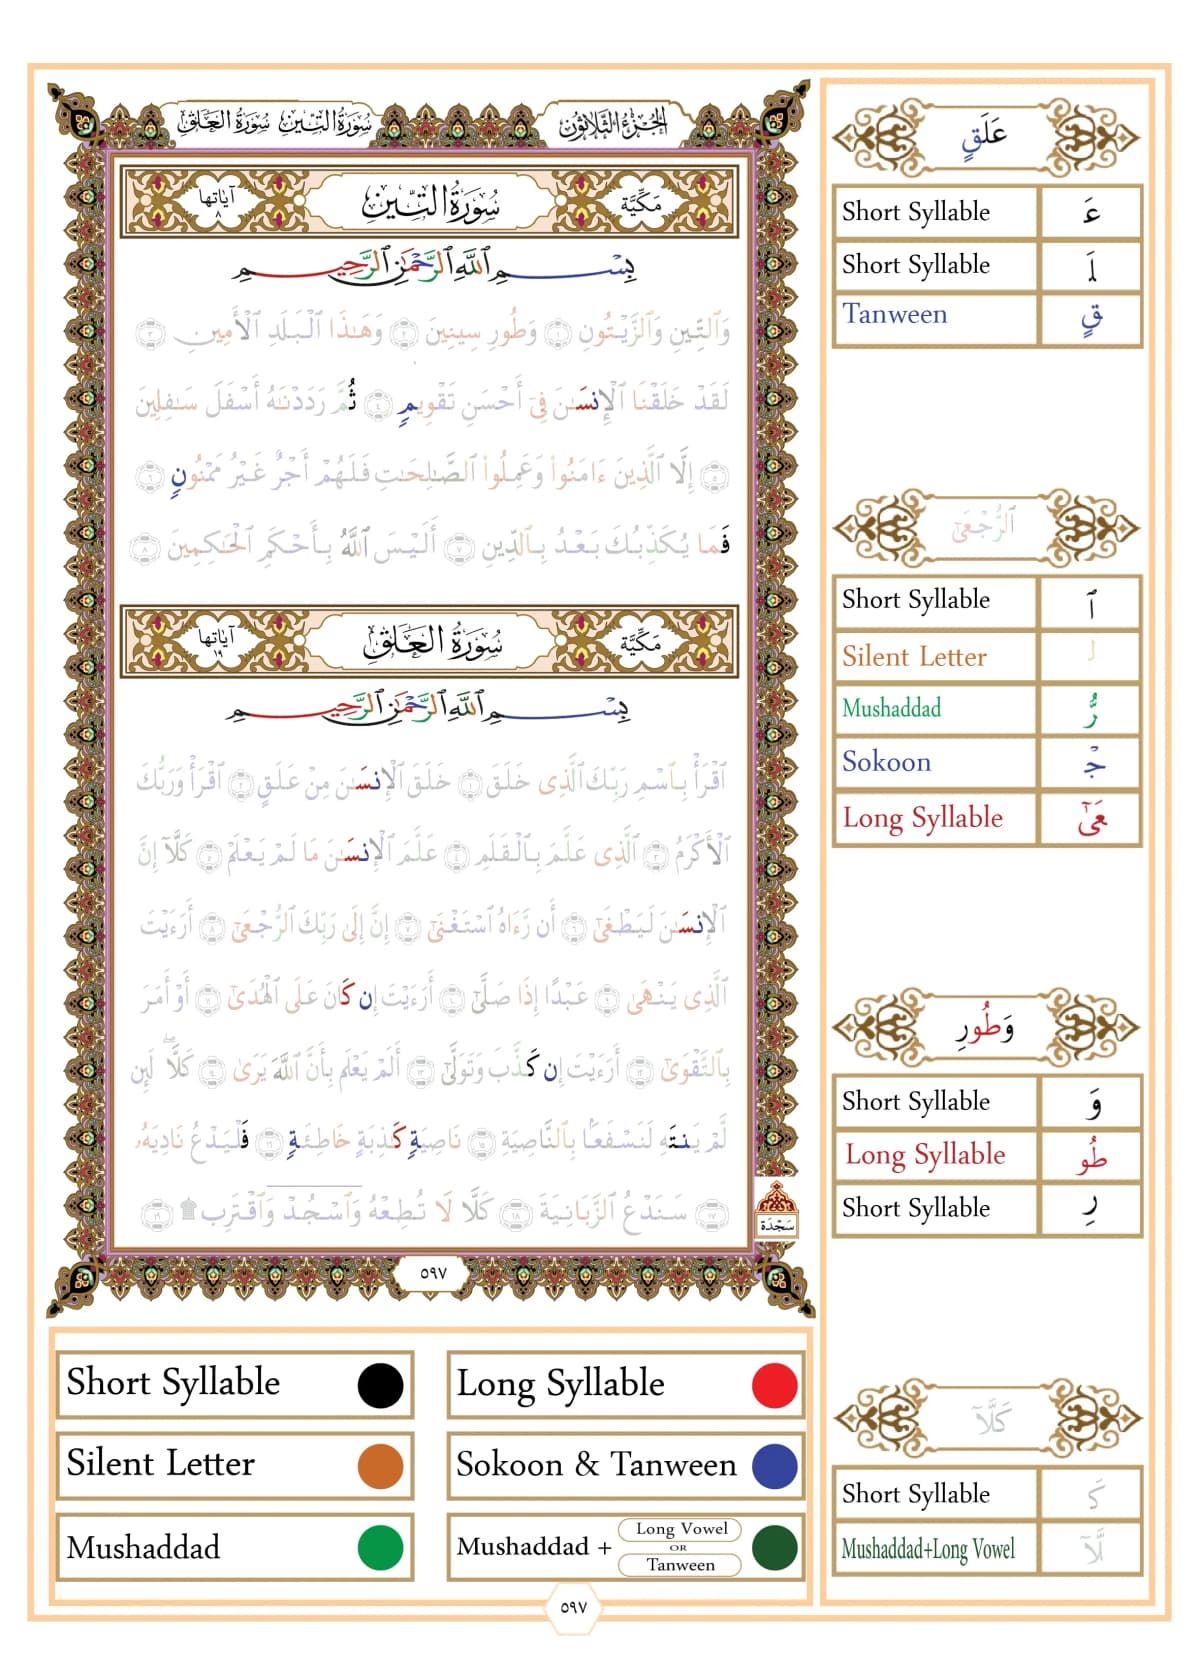 سُورَةُ التِّينِ سُورَةُ العَلَقِ
الجُزءُ الثَّلاثُونَ
مَكِّيَّة
سُورَةُ التِّينِ
آيَاتها ٨
بِسْمِ ٱللَّهِ ٱلرَّحْمَٰنِ ٱلرَّحِيمِ
وَٱلتِّينِ وَٱلزَّيْتُونِ ١ وَطُورِ سِينِينَ ٢ وَهَٰذَا ٱلْبَلَدِ ٱلْأَمِينِ ٣
لَقَدْ خَلَقْنَا ٱلْإِنسَٰنَ فِىٓ أَحْسَنِ تَقْوِيمٍ ٤ ثُمَّ رَدَدْنَٰهُ أَسْفَلَ سَٰفِلِينَ
٥ إِلَّا ٱلَّذِينَ ءَامَنُوا۟ وَعَمِلُوا۟ ٱلصَّٰلِحَٰتِ فَلَهُمْ أَجْرٌ غَيْرُ مَمْنُونٍ ٦
فَمَا يُكَذِّبُكَ بَعْدُ بِٱلدِّينِ ٧ أَلَيْسَ ٱللَّهُ بِأَحْكَمِ ٱلْحَٰكِمِينَ ٨
مَكِّيَّة
سُورَةُ العَلَقِ
آيَاتها ١٩
بِسْمِ ٱللَّهِ ٱلرَّحْمَٰنِ ٱلرَّحِيمِ
ٱقْرَأْ بِٱسْمِ رَبِّكَ ٱلَّذِى خَلَقَ ١ خَلَقَ ٱلْإِنسَٰنَ مِنْ عَلَقٍ ٢ ٱقْرَأْ وَرَبُّكَ
ٱلْأَكْرَمُ ٣ ٱلَّذِى عَلَّمَ بِٱلْقَلَمِ ٤ عَلَّمَ ٱلْإِنسَٰنَ مَا لَمْ يَعْلَمْ ٥ كَلَّآ إِنَّ
ٱلْإِنسَٰنَ لَيَطْغَىٰٓ ٦ أَن رَّءَاهُ ٱسْتَغْنَىٰٓ ٧ إِنَّ إِلَىٰ رَبِّكَ ٱلرُّجْعَىٰٓ ٨ أَرَءَيْتَ
ٱلَّذِى يَنْهَىٰ ٩ عَبْدًا إِذَا صَلَّىٰٓ ١٠ أَرَءَيْتَ إِن كَانَ عَلَى ٱلْهُدَىٰٓ ١١ أَوْ أَمَرَ
بِٱلتَّقْوَىٰٓ ١٢ أَرَءَيْتَ إِن كَذَّبَ وَتَوَلَّىٰٓ ١٣ أَلَمْ يَعْلَم بِأَنَّ ٱللَّهَ يَرَىٰ ١٤ كَلَّا لَئِن
لَّمْ يَنتَهِ لَنَسْفَعًۢا بِٱلنَّاصِيَةِ ١٥ نَاصِيَةٍ كَٰذِبَةٍ خَاطِئَةٍ ١٦ فَلْيَدْعُ نَادِيَهُۥ
١٧ سَنَدْعُ ٱلزَّبَانِيَةَ ١٨ كَلَّا لَا تُطِعْهُ وَٱسْجُدْ وَٱقْتَرِب ۩ ١٩
سَجْدَة
٥٩٧
عَلَقٍ
Short Syllable عَ
Short Syllable لَ
Tanween قٍ
ٱلرُّجْعَىٰٓ
Short Syllable ٱ
Silent Letter ل
Mushaddad رُّ
Sokoon جْ
Long Syllable عَىٰٓ
وَطُورِ
Short Syllable وَ
Long Syllable طُو
Short Syllable رِ
كَلَّآ
Short Syllable كَ
Mushaddad+Long Vowel لَّآ
Short Syllable
Long Syllable
Silent Letter
Sokoon & Tanween
Mushaddad
Mushaddad + Long Vowel OR Tanween
٥٩٧